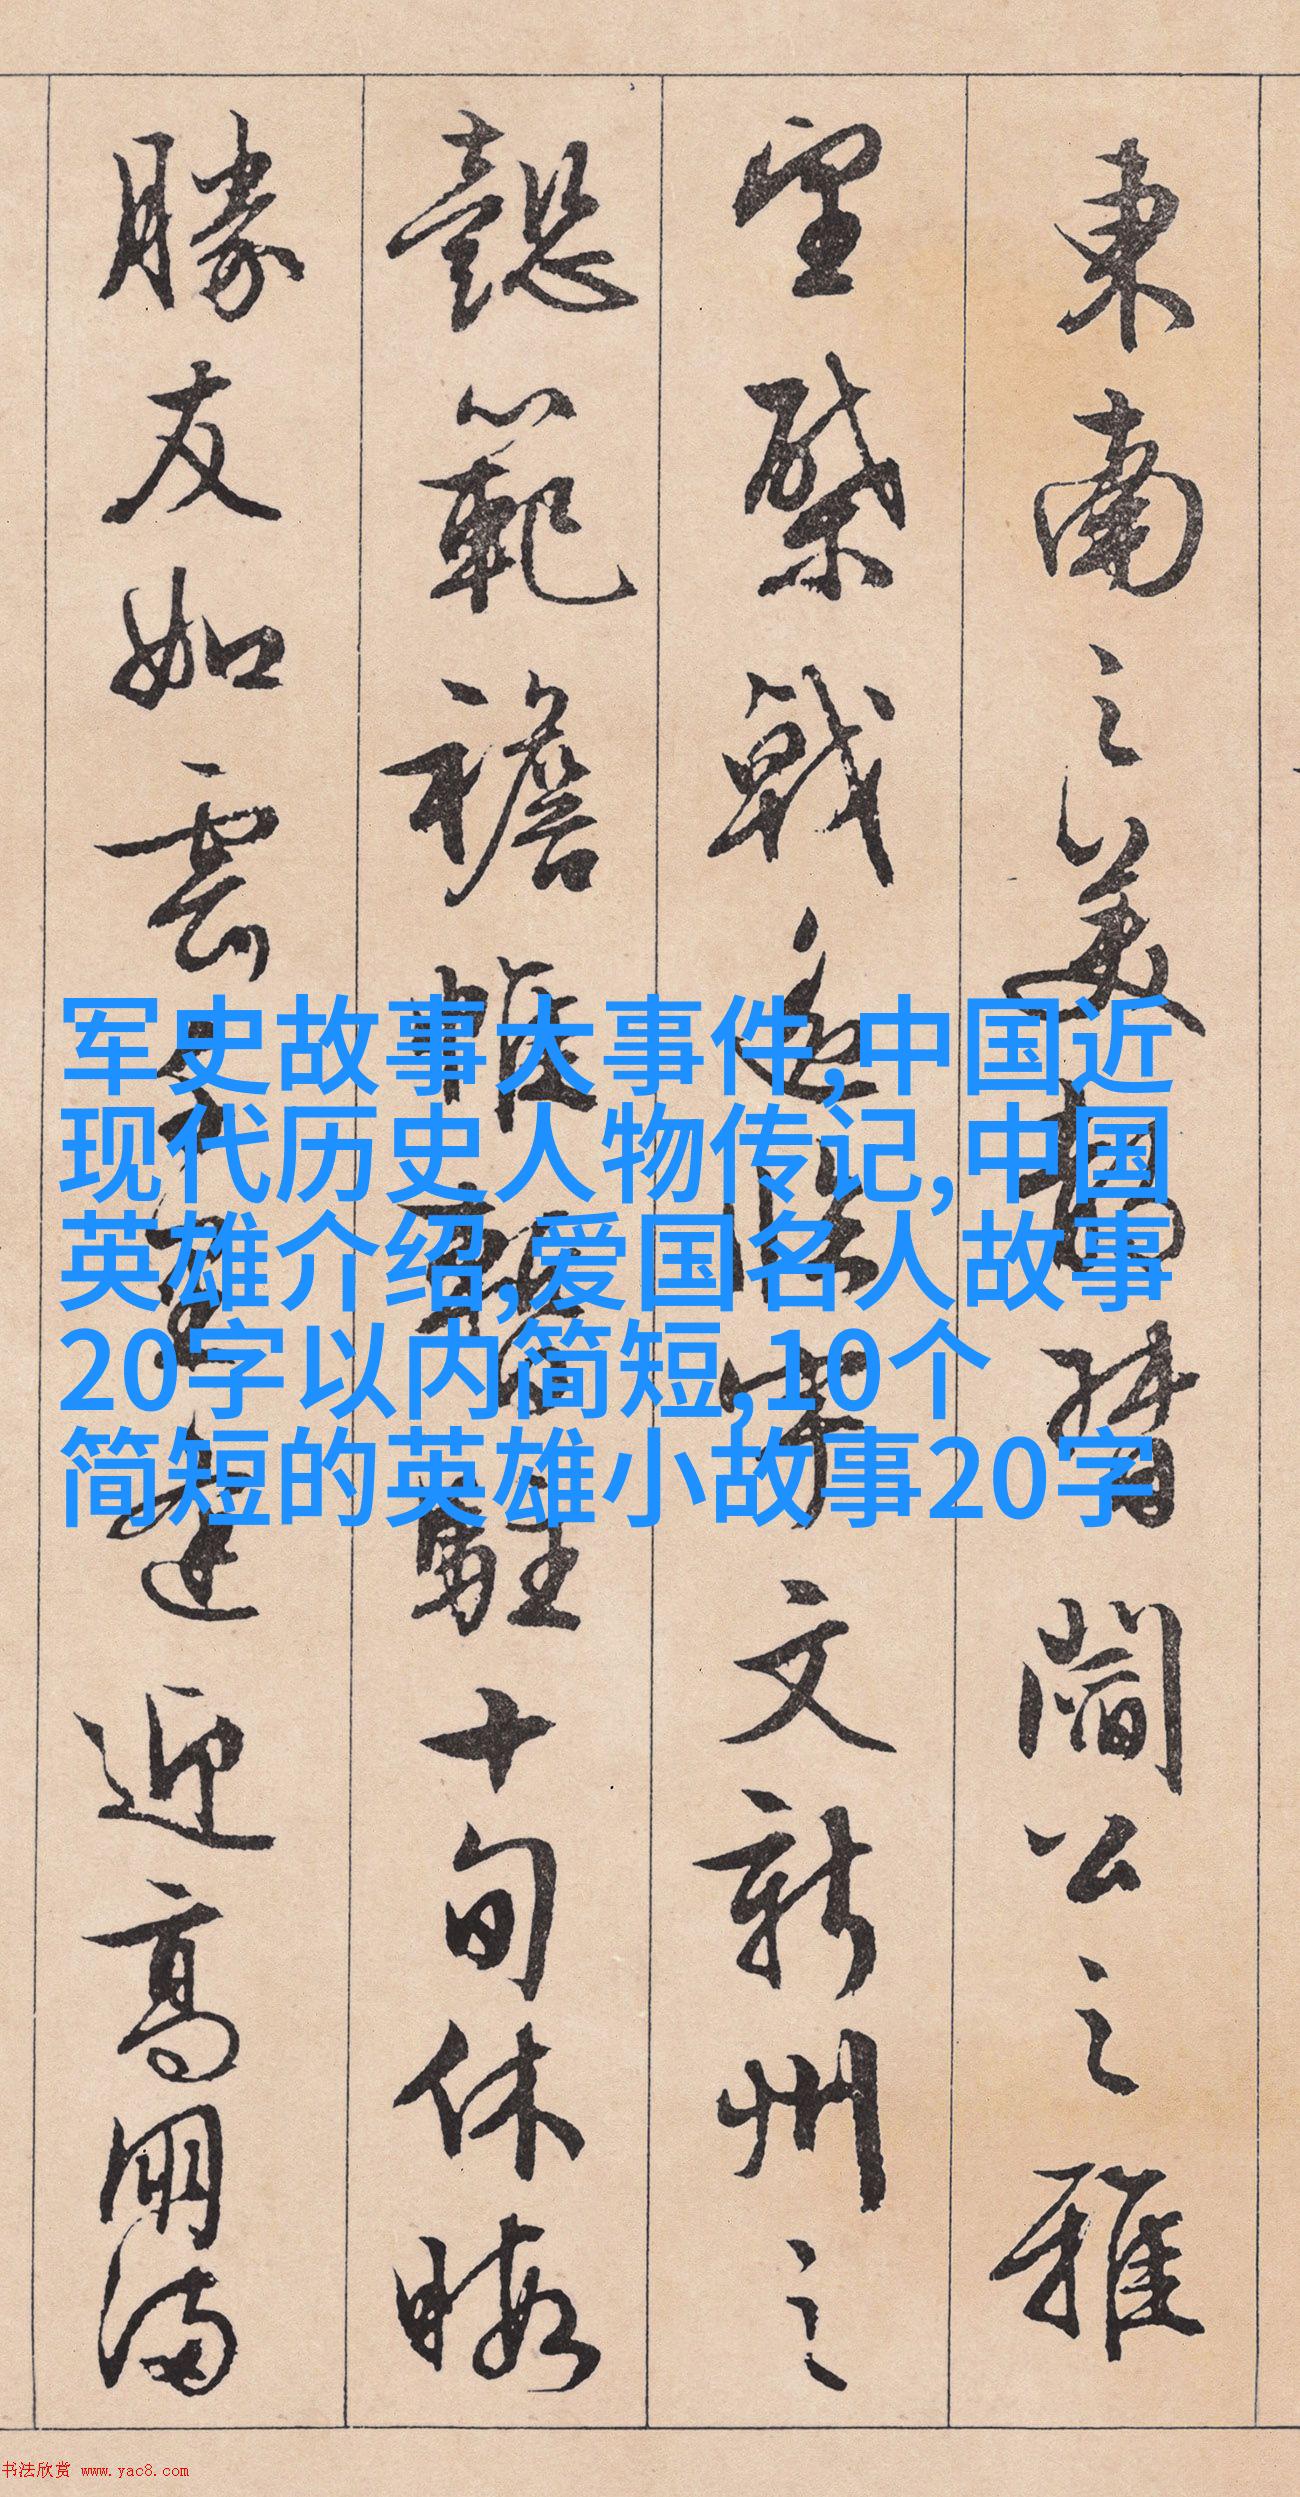 東南之美都督閻公之雅
望棨戟遙臨宇文新州之
懿範襜帷暫駐十旬休暇
勝友如雲千里逢迎高朋滿
军史故事大事件,中国近
现代历史人物传记,中国
英雄介绍,爱国名人故事
20字以内简短,10个
简短的英雄小故事20字
书法欣赏 www.yac8.com